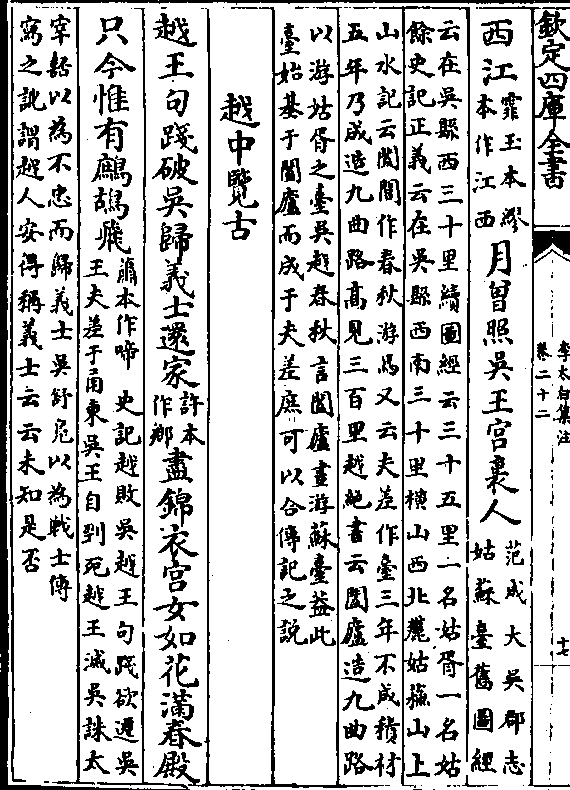 欽定四庫全書
李太白集注
卷二十二
十七
西江
霏玉本繆
本作江西
月曾照吳王宮裏人
范成大吳郡志
姑蘇臺舊圖經
云在吳縣西三十里續圖經云三十五里一名姑胥一名姑
餘史記正義云在吳縣西南三十里横山西北麓姑蘇山上
山水記云闔閭作春秋游焉又云夫差作臺三年不成積材
五年乃成造九曲路高見三百里越絕書云闔廬造九曲路
以游姑胥之臺吳越春秋言闔廬晝游蘇臺葢此
臺始基于闔廬而成于夫差庶可以合傳記之說
越中覽古
越王句踐破吳歸義士還家
許本
作鄉
盡錦衣宮女如花滿春殿
只今惟有鷓鴣飛
蕭本作啼 史記越敗吳越王句踐欲遷吳
王夫差于甬東吳王自剄死越王滅吳誅太
宰嚭以為不忠而歸義士吳舒鳧以為戰士傳
寫之訛謂越人安得稱義士云云未知是否